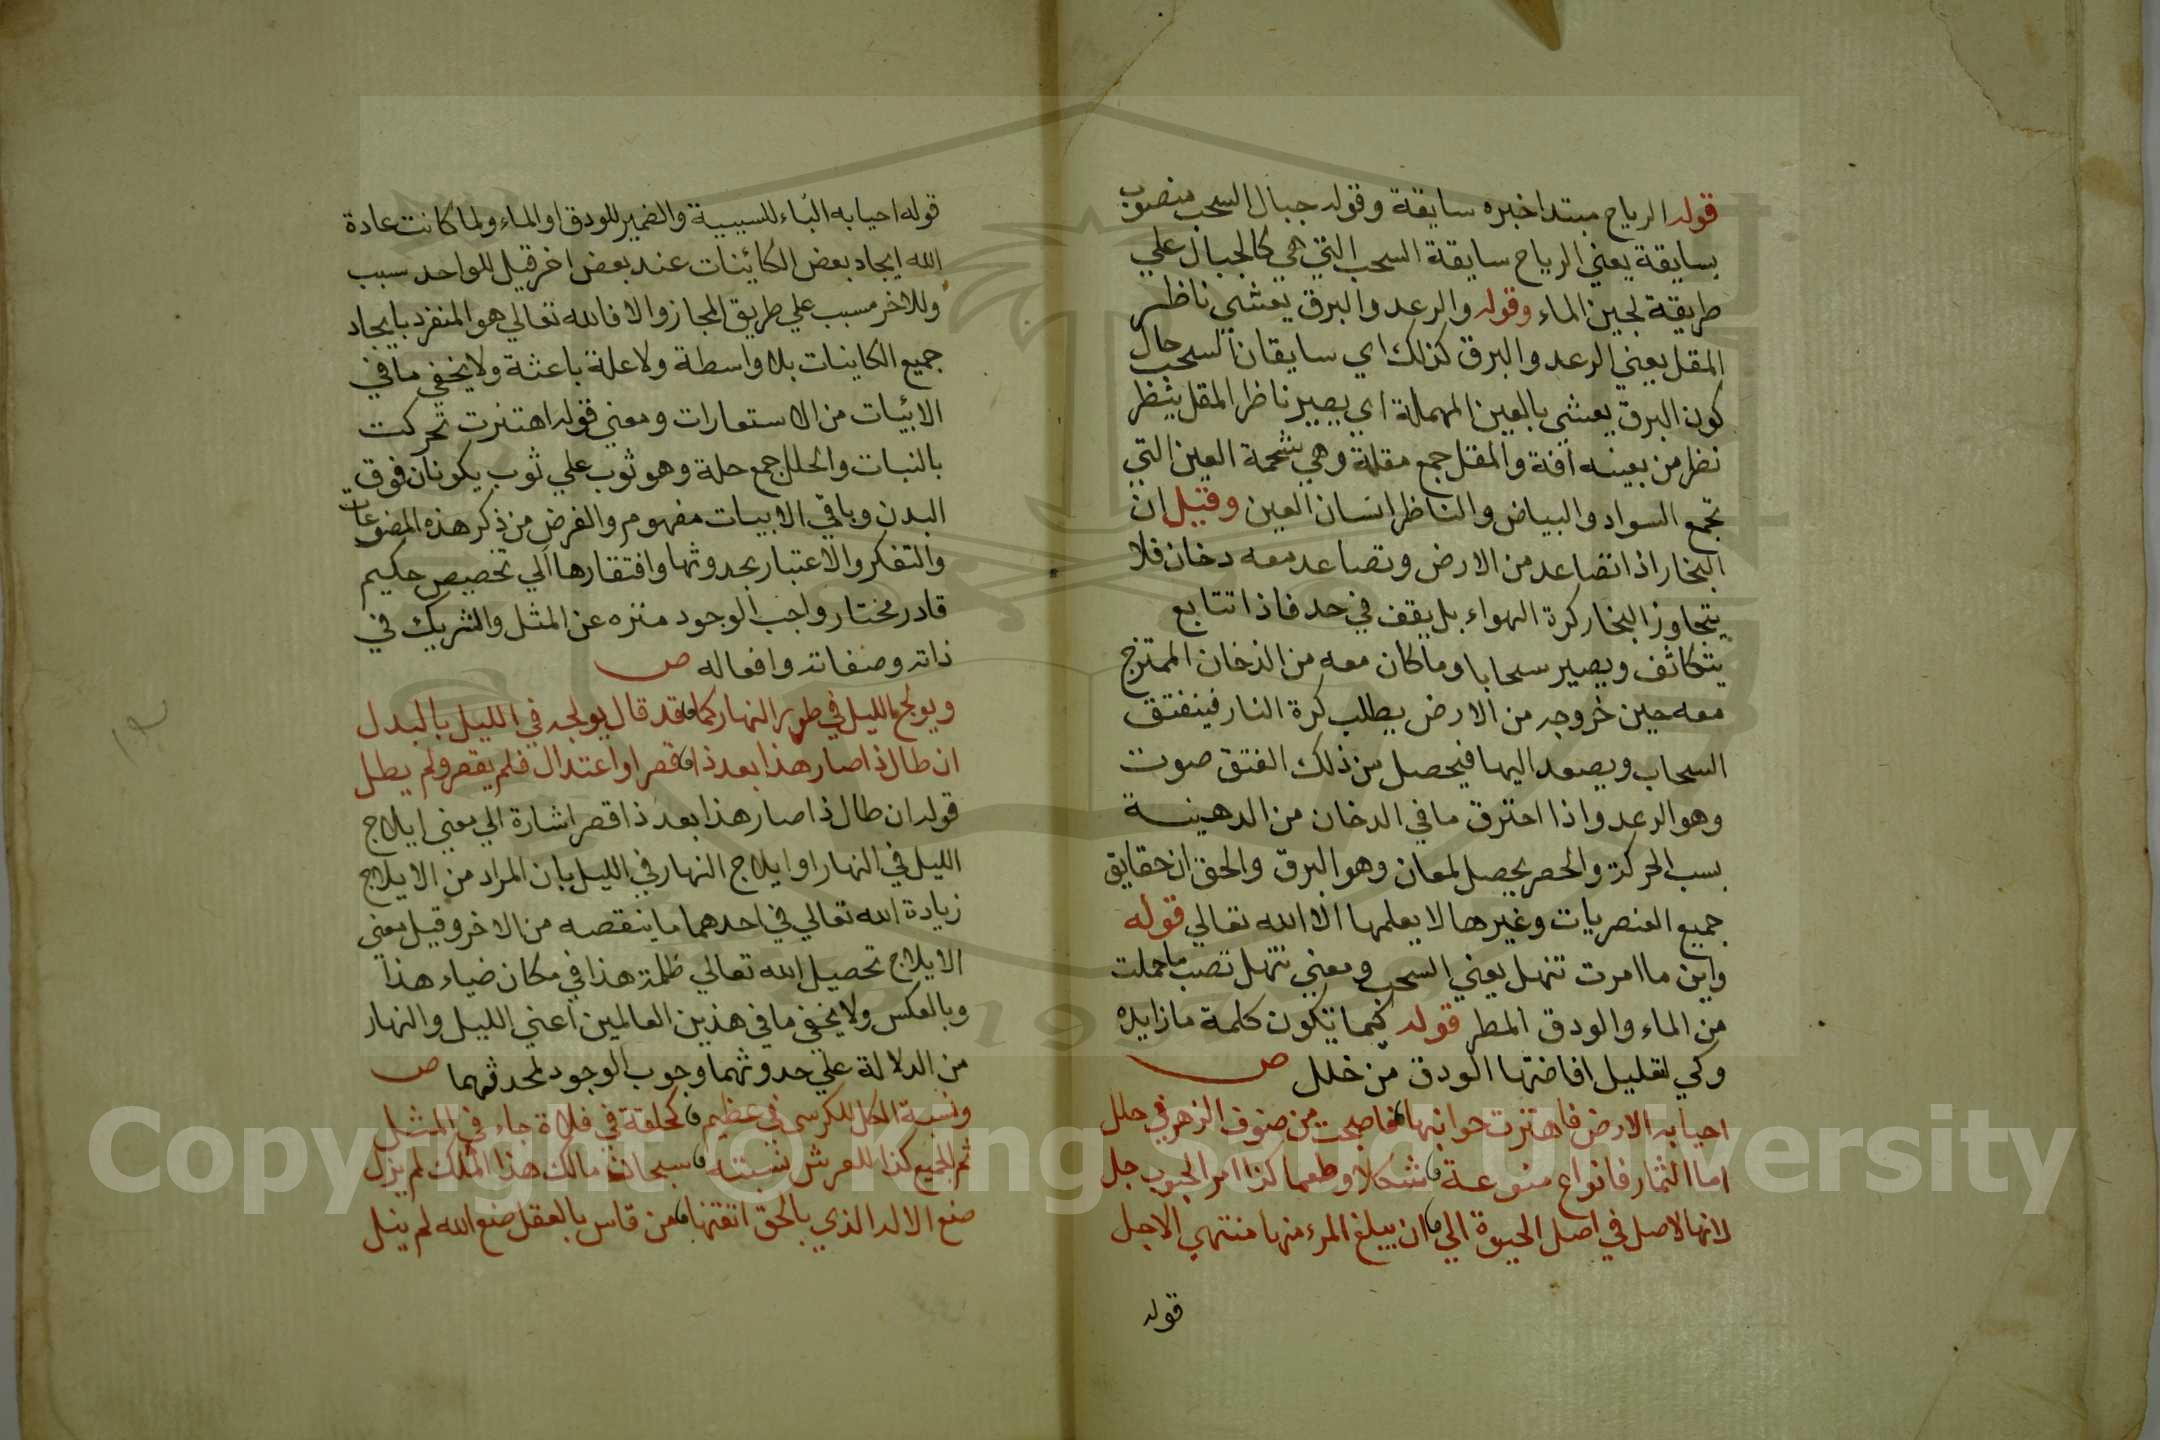 قوله الرياح مبتدا خبره سايقة وقوله جبال السحب منصوب
بسايقة يعني الرياح سايقة السحب التي هي كالجبال علي
طريقة لجين الماء وقوله والرعد والبرق يعشي ناظر
المقل يعني الرعد والبرق كذلك اي سايقان السحب حال
كون البرق يعشي بالعين المهملة اي يصير ناظر المقل ينظر
نظر من بعينه آفة والمقل جمع مقلة وهي شحمة العين التي
تجمع السواد والبياض والناظر انسان العين وقيل ان
البخار اذا تصاعد من الارض وتصاعد معه دخان فلا
يتجاوز البخار كرة الهواء بل يقف في حد فاذا تتابع
يتكاثف ويصير سحابا وما كان معه من الدخان الممتزج
معه حين خروجه من الارض يطلب كرة النار فينفتق
السحاب ويصعد اليها فيحصل من ذلك الفتق صوت
وهو الرعد واذا احترق ما في الدخان من الدهنية
بسب الحركة والحصر يحصل لمعان وهو البرق والحق ان حقايق
جميع العنصريات وغيرها لا يعلمها الا الله تعالي قوله
واين ما امرت تنهل يعني السحب ومعني تنهل تصب ما حملت
من الماء والودق المطر قوله كيما تكون كلمة ما زايدة
وكي لتعليل افاضتها الودق من خلل ص
احيا به الارض فاهتزت جوانبها فاصبحت من صنوف الزهر في حلل
اما الثمار فانواع منوعة شكلا وطعما كذا امر الحبوب جل
لانها لاصل في اصل الحيوة الي ان يبلغ المرء منها منتهي الاجل
قوله
قوله احيا به الباء للسببية والضمير للودق او الماء ولما كانت عادة
الله ايجاد بعض الكائنات عند بعض اخر قيل للواحد سبب
وللاخر مسبب علي طريق المجاز والا فالله تعالي هو المنفرد بايجاد
جميع الكاينات بلا واسطة ولا علة باعثة ولا يخفي ما في
الابيات من الاستعارات ومعني قوله اهتزت تحركت
بالنبات والحلل جمع حلة وهو ثوب علي ثوب يكونان فوق
البدن وباقي الابيات مفهوم والغرض من ذكر هذه المصنوعات
والتفكر والاعتبار بحدوثها وافتقارها الي تخصيص حكيم
قادر مختار واجب الوجود منزه عن المثل والشريك في
ذاته وصفاته وافعاله ص
ويولج الليل في طور النهار كما قد قال يولجه في الليل بالبدل
ان طال ذا صار هذا بعد ذا قصر او اعتدال فلم يقصر ولم يطل
قوله ان طال ذا صار هذا بعد ذا قصر اشارة الي معني ايلاج
الليل في النهار او ايلاج النهار في الليل بان المراد من الايلاج
زيادة الله تعالي في احدهما ما ينقصه من الاخر وقيل معني
الايلاج تحصيل الله تعالي ظلمة هذا في مكان ضياء هذا
وبالعكس ولا يخفي ما في هذين العالمين اعني الليل والنهار
من الدلالة علي حدوثهما وجوب الوجود لمحدثهما ص
ونسبة الكل للكرسي في عظيم كحلقة في فلاة جاء في المثل
ثم الجميع كذا للعرش نسبته سبحان مالك هذا الملك لم يزل
صنع الاله الذي بالحق اتقنها من قاس بالعقل صنع الله لم ينل
Copyright © King Saud University
1957